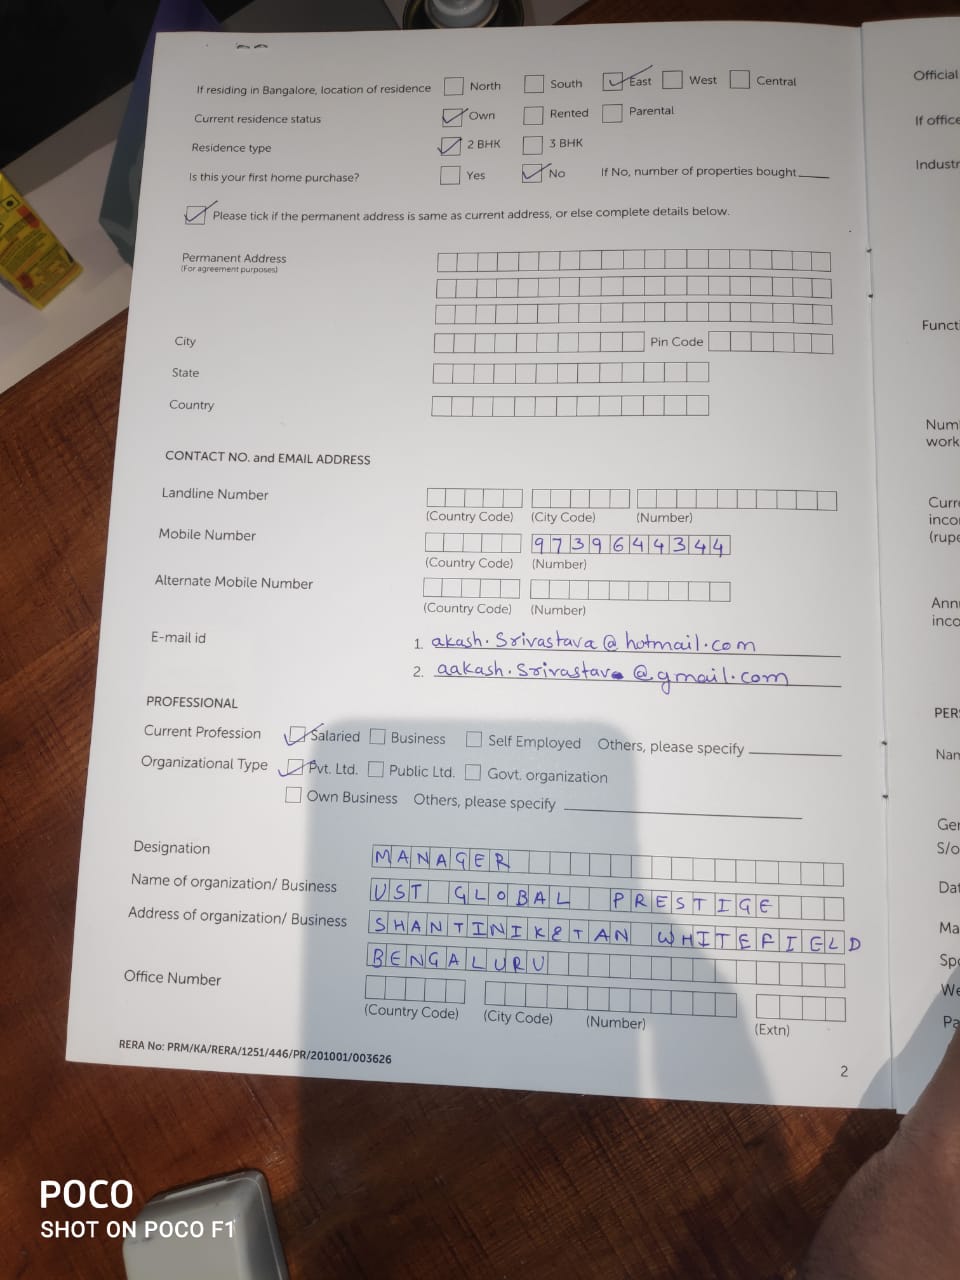 If residing in Bangalore, location of residence North South East West Central
Current residence status Own Rented Parental
Residence type 2 BHK 3 BHK
Is this your first home purchase? Yes No If No, number of properties bought
Please tick if the permanent address is same as current address, or else complete details below.
Permanent Address
(For agreement purposes)
City Pin Code
State
Country
CONTACT NO. and EMAIL ADDRESS
Landline Number
(Country Code) (City Code) (Number)
Mobile Number 9739644344
(Country Code) (Number)
Alternate Mobile Number
(Country Code) (Number)
E-mail id 1. akash.Srivastava@hotmail.com
2. aakash.Srivastava@gmail.com
PROFESSIONAL
Current Profession Salaried Business Self Employed Others, please specify
Organizational Type Pvt. Ltd. Public Ltd. Govt. organization
Own Business Others, please specify
Designation MANAGER
Name of organization/ Business UST GLOBAL PRESTIGE
Address of organization/ Business SHANTINIKETAN WHITEFIELD
BENGALURU
Office Number
(Country Code) (City Code) (Number) (Extn)
RERA No: PRM/KA/RERA/1251/446/PR/201001/003626
2
Official
If office
POCO
SHOT ON POCO F1